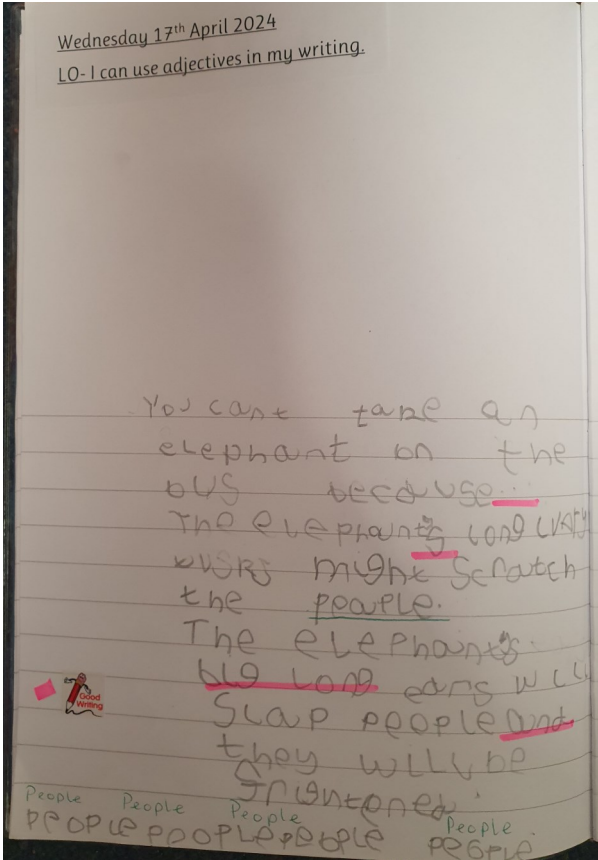 Wednesday 17th April 2024
LO- I can use adjectives in my writing.
You cant take an
elephant on the
bus because...
The elephant's long
might scratch
the peaple.
The elephant's
big long ears will
Slap people and
they will be
frightened.
Good
Writing
People People People People
people people people people